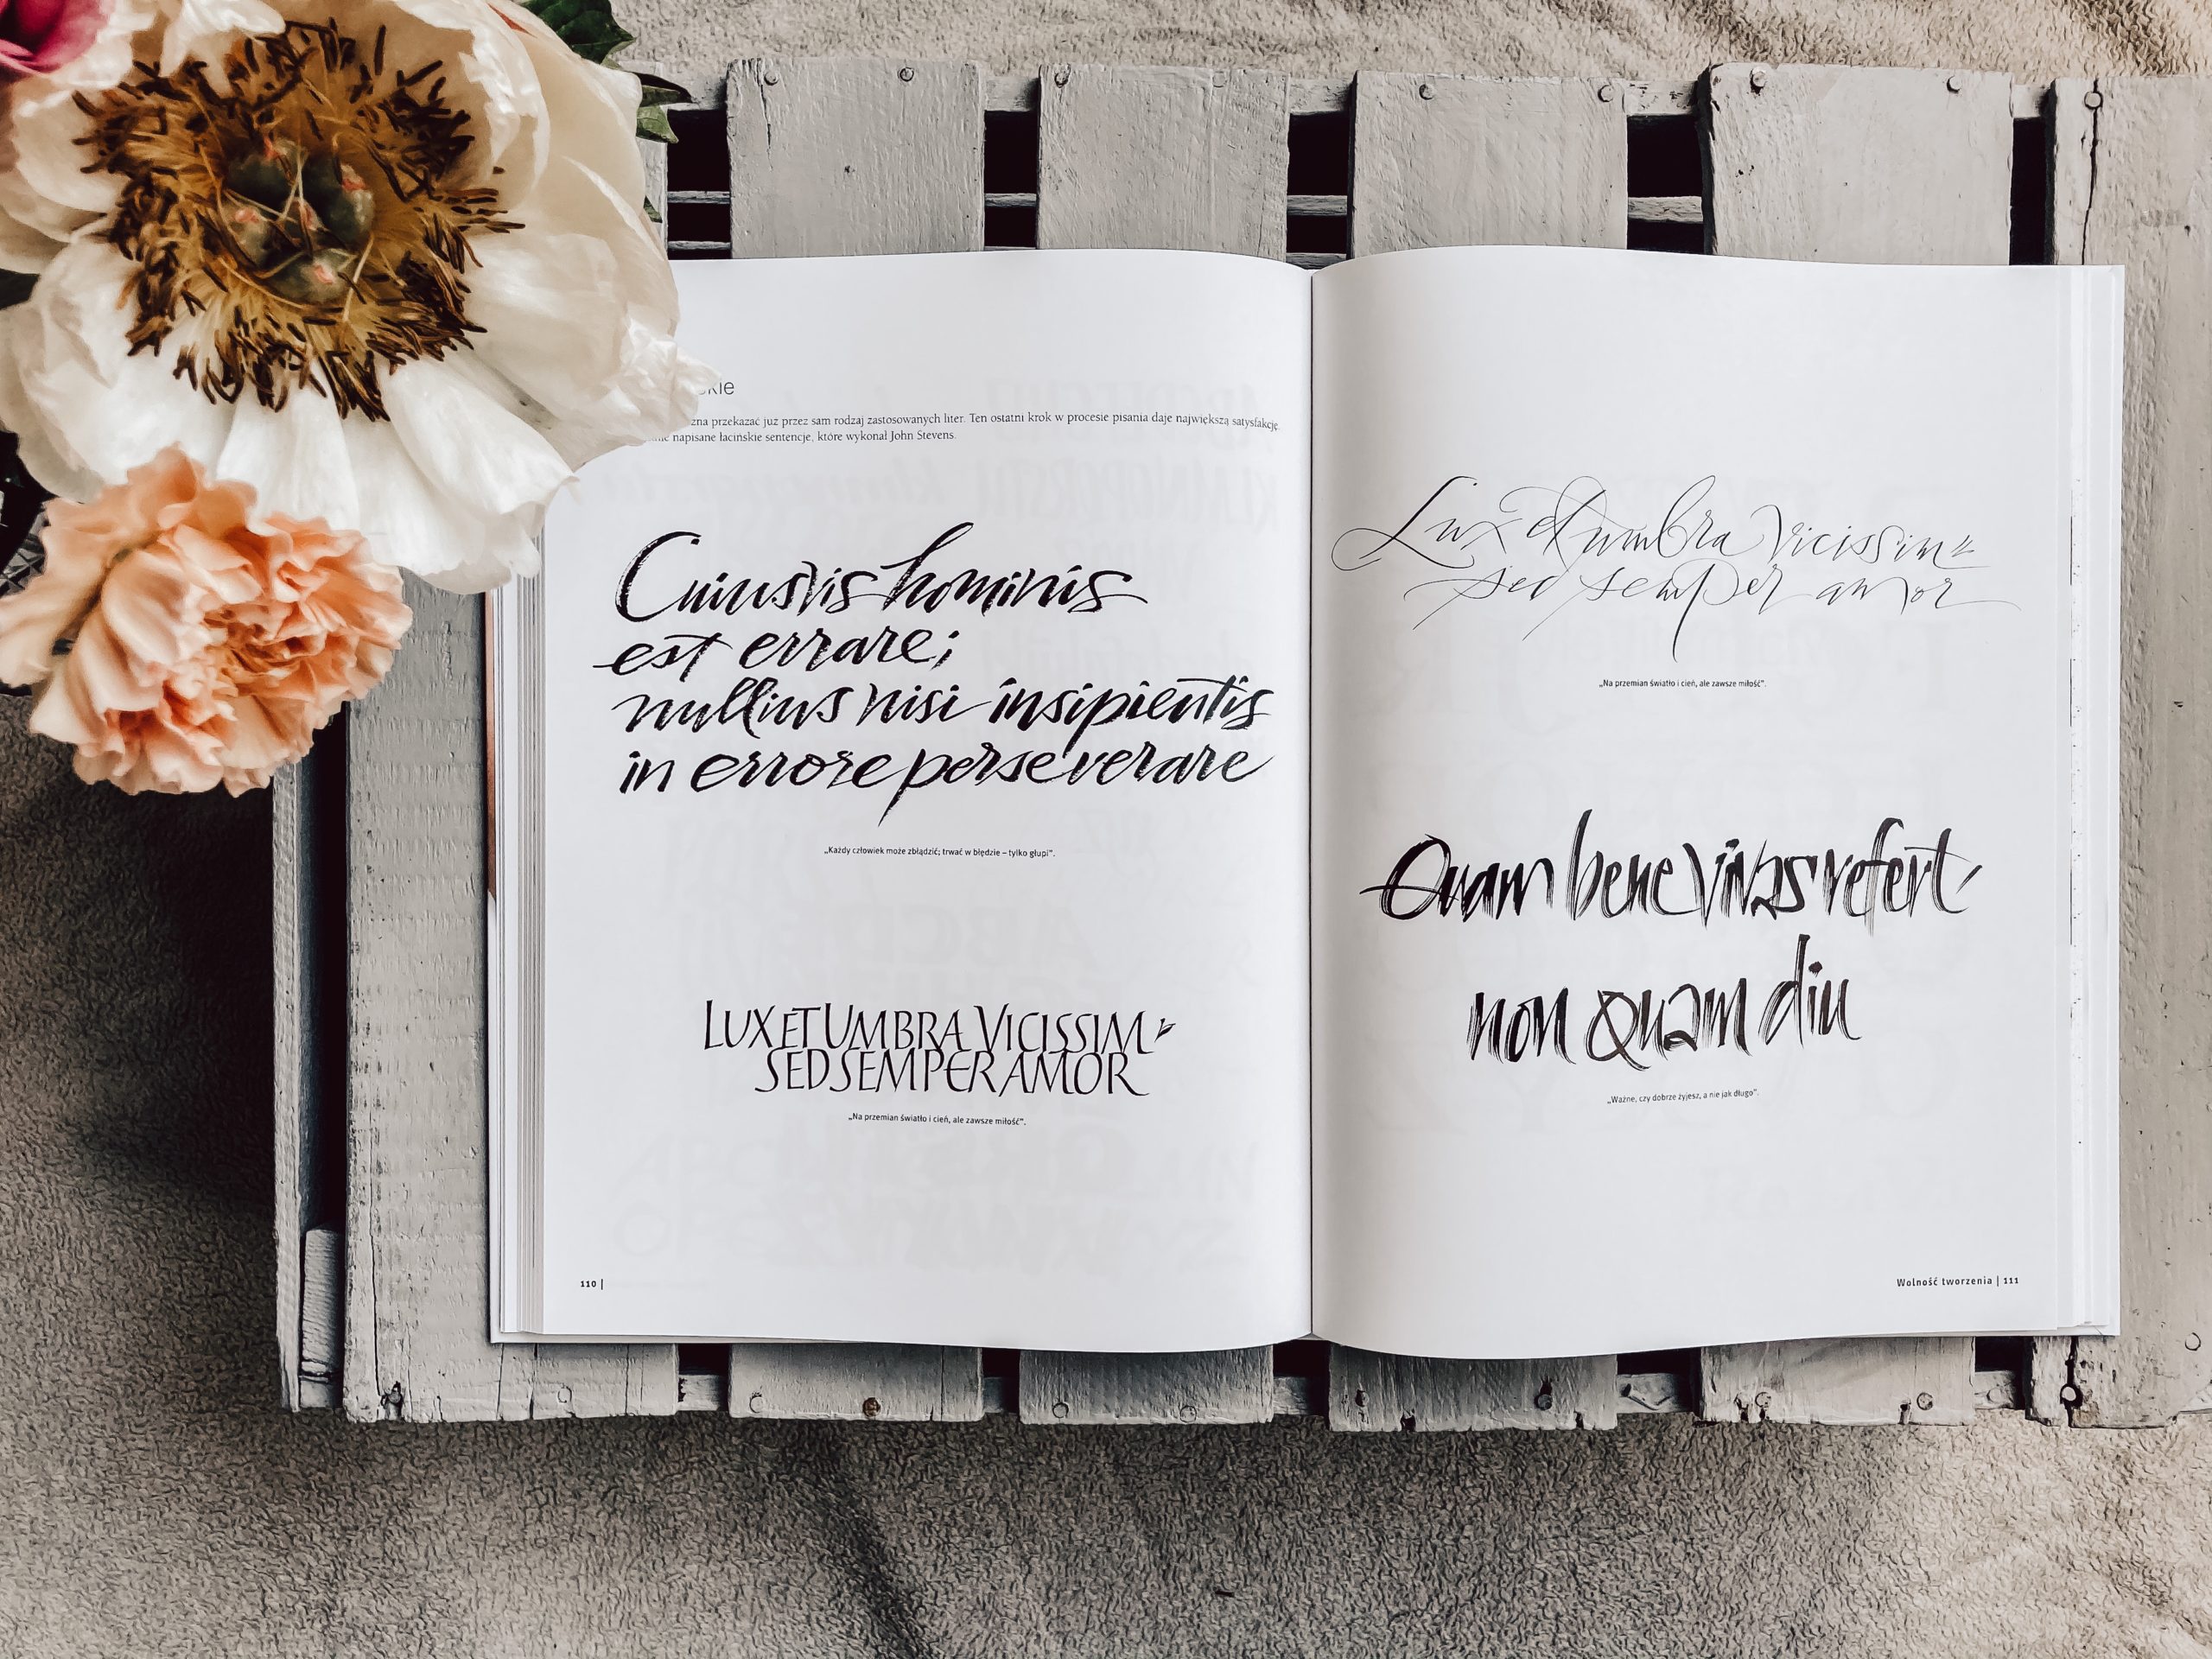 przekazać już przez sam rodzaj zastosowanych liter. Ten ostatni krok w procesie pisania daje największą satysfakcję.
napisane łacińskie sentencje, które wykonał John Stevens.
Cuiusvis hominis
est errare;
nullius nisi insipientis
in errore perseverare
„Każdy człowiek może zbłądzić; trwać w błędzie – tylko głupi”.
LUX ET UMBRA VICISSIM
SED SEMPER AMOR
„Na przemian światło i cień, ale zawsze miłość”.
110 |
Lux et umbra vicissim
sed semper amor
„Na przemian światło i cień, ale zawsze miłość”.
Quam bene vivas refert
non quam diu
„Ważne, czy dobrze żyjesz, a nie jak długo”.
Wolność tworzenia | 111